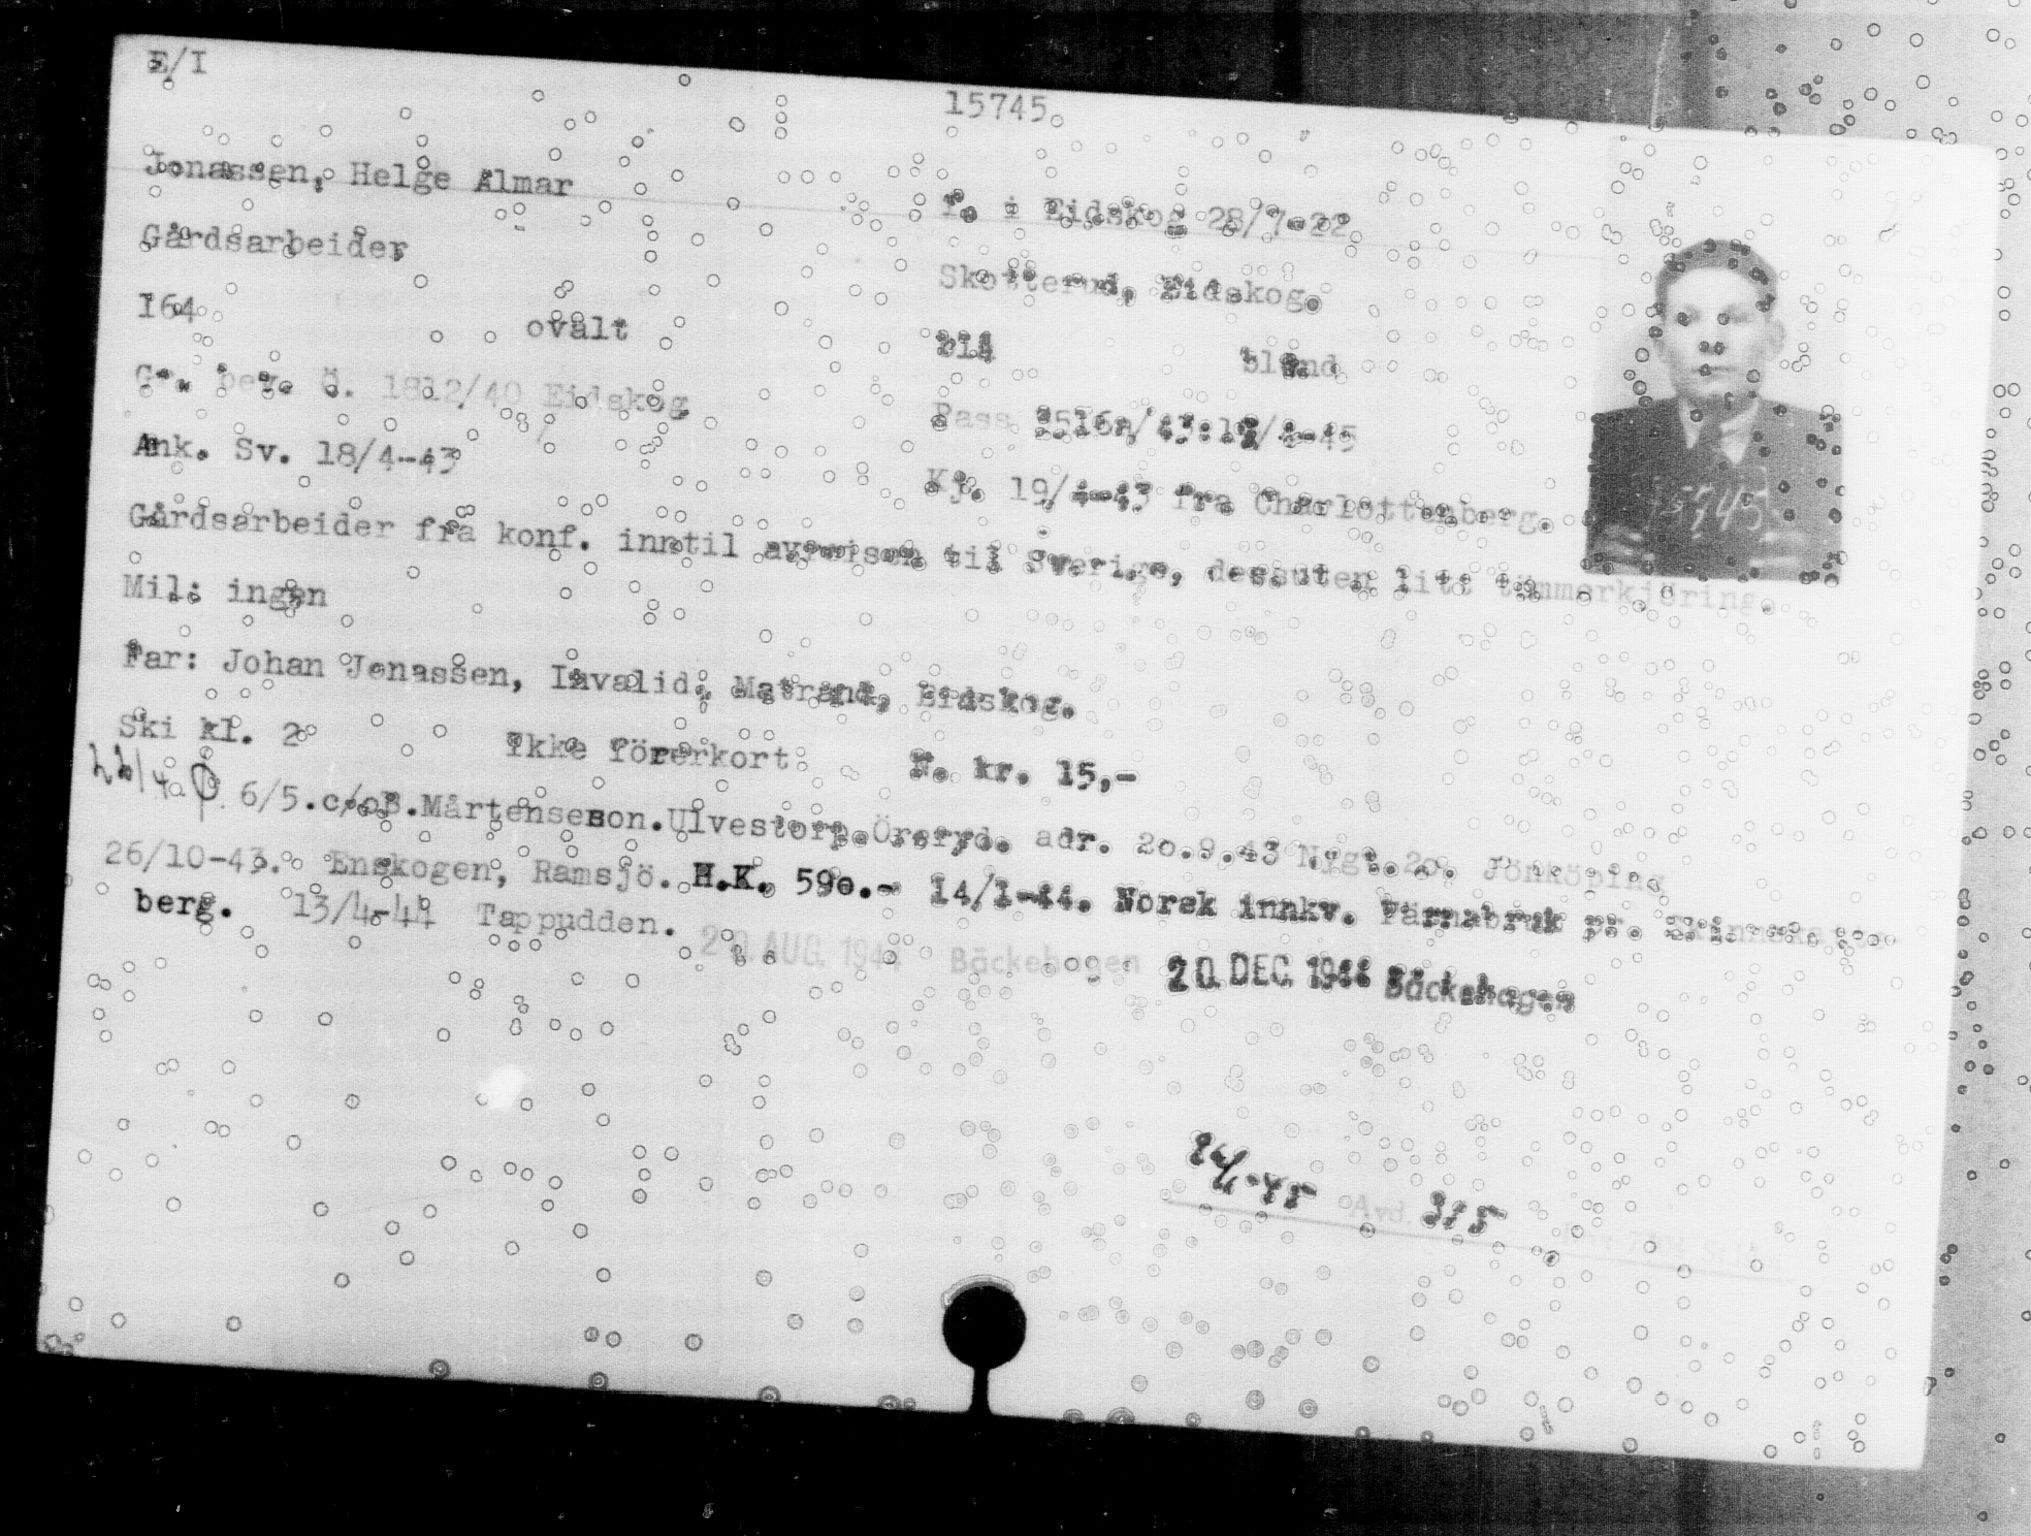 E/I
15745
Jonassen, Helge Almar
f. i Eidskog 28/7-22
Gårdsarbeider
Skotterud, Eidskog.
164 ovalt blå blond
Gr. bev. Ö. 1812/40 Eidskog
Pass
Ank. Sv. 18/4-43
Kj. 19/4-43 fra Charlottenberg.
Gårdsarbeider fra konf. inntil avreisen til Sverige, dessuten litt tömmerkjöring.
Mil: ingen
Far: Johan Jonassen, Invalid, Matrand, Eidskog.
Ski kl. 2 Ikke förerkort N. kr. 15,-
6/5.c/oB.Mårtenseson.Ulvestorp.Öreryd. adr. 20.9.43 Nygt. 20. Jönköping
26/10-43. Enskogen, Ramsjö. H.K. 590.- 14/1-44. Norsk innkv. Färnabruk pr. Skinnskatte
berg. 13/4-44 Tappudden.
20 AUG. 1944 Bäckehagen 20 DEC 1944 Bäckehagen
Avd.
15745